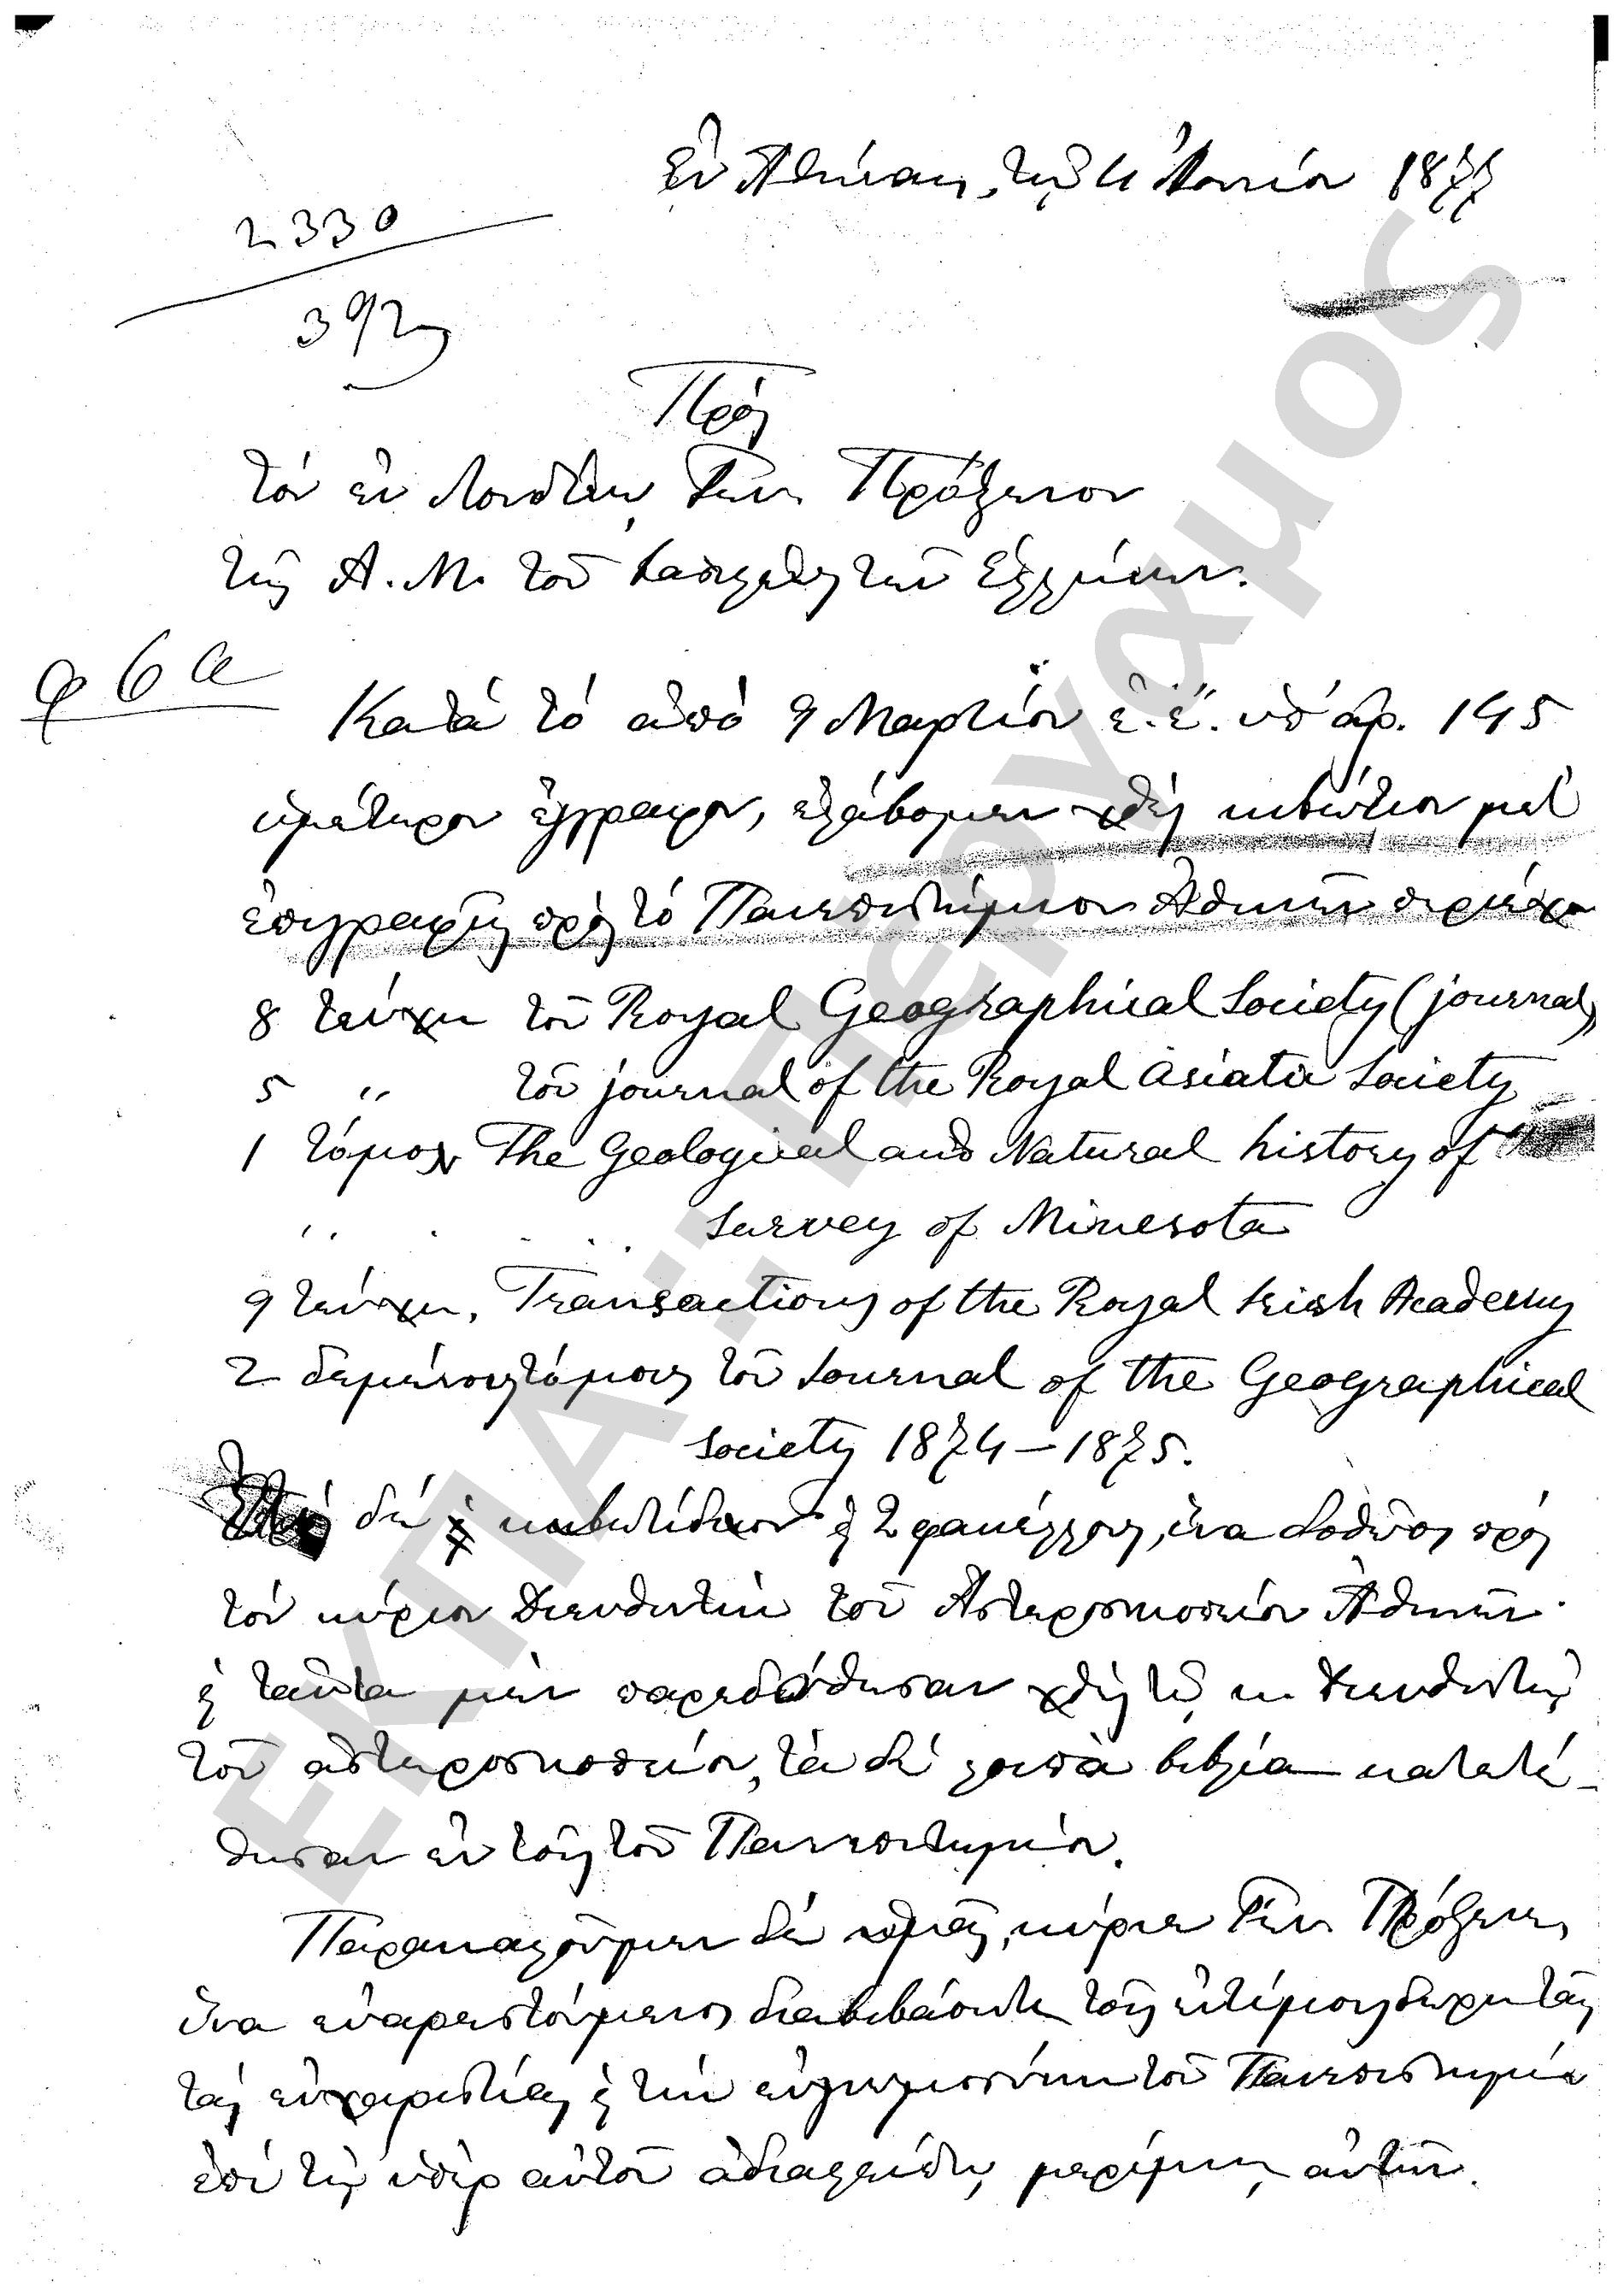 Ἐν Ἀθήναις, τῇ 4 Ἰουνίου 1877
2330
392
Πρὸς
τὸν ἐν Λονδίνῳ Γεν. Πρόξενον
τῆς Α. Μ. τοῦ βασιλέως τῶν Ἑλλήνων.
φ 6 α
Κατὰ τὸ ἀπὸ 9 Μαρτίου ἐ. ἔ. ὑπ' ἀρ. 145
ὑμέτερον ἔγγραφον, ἐλάβομεν χθὲς κιβώτιον μετ'
ἐπιγραφῆς πρὸς τὸ Πανεπιστήμιον Ἀθηνῶν περιέχον
8 τεύχη τοῦ Royal Geographical Society (journal)
5 " τοῦ journal of the Royal Asiatic Society
1 τόμον The Geological and Natural history of
" survey of Minesota
9 τεύχη, Transactions of the Royal Irish Academy
2 δεμένους τόμους τοῦ Journal of the Geographical
Society 1874 – 1875.
δὲ κιβωτίδιον ϗ 2 φακέλλους, ἵνα δοθῶσι πρὸς
τὸν κύριον Διευθυντὴν τοῦ Ἀστεροσκοπείου Ἀθηνῶν·
ϗ ταῦτα μὲν παρεδόθησαν χθὲς τῷ κ. Διευθυντῇ
τοῦ ἀστεροσκοπείου, τὰ δὲ λοιπὰ βιβλία κατετέ-
θησαν ἐν τοῖς τοῦ Πανεπιστημίου.
Παρακαλοῦμεν δὲ ὑμᾶς, κύριε Γεν. Πρόξενε,
ἵνα εὐαρεστούμενος διαβιβάσητε τοῖς ἐντίμοις δωρηταῖς
τὰς εὐχαριστίας ϗ τὴν εὐγνωμοσύνην τοῦ Πανεπιστημίου
ἐπὶ τῇ ὑπὲρ αὐτοῦ ἀδιαλείπτῳ μερίμνῃ αὐτῶν.
ΕΚΠΑ: Πέργαμος